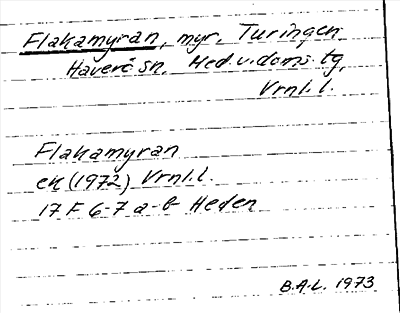 Flakamyran, myr, Turingen
Haverö sn, Med.v.doms. tg,
Vrnl. l.
Flakamyran
ek (1972) Vrnl.l.
17 F 6-7 a-b Heden
B.A-L. 1973